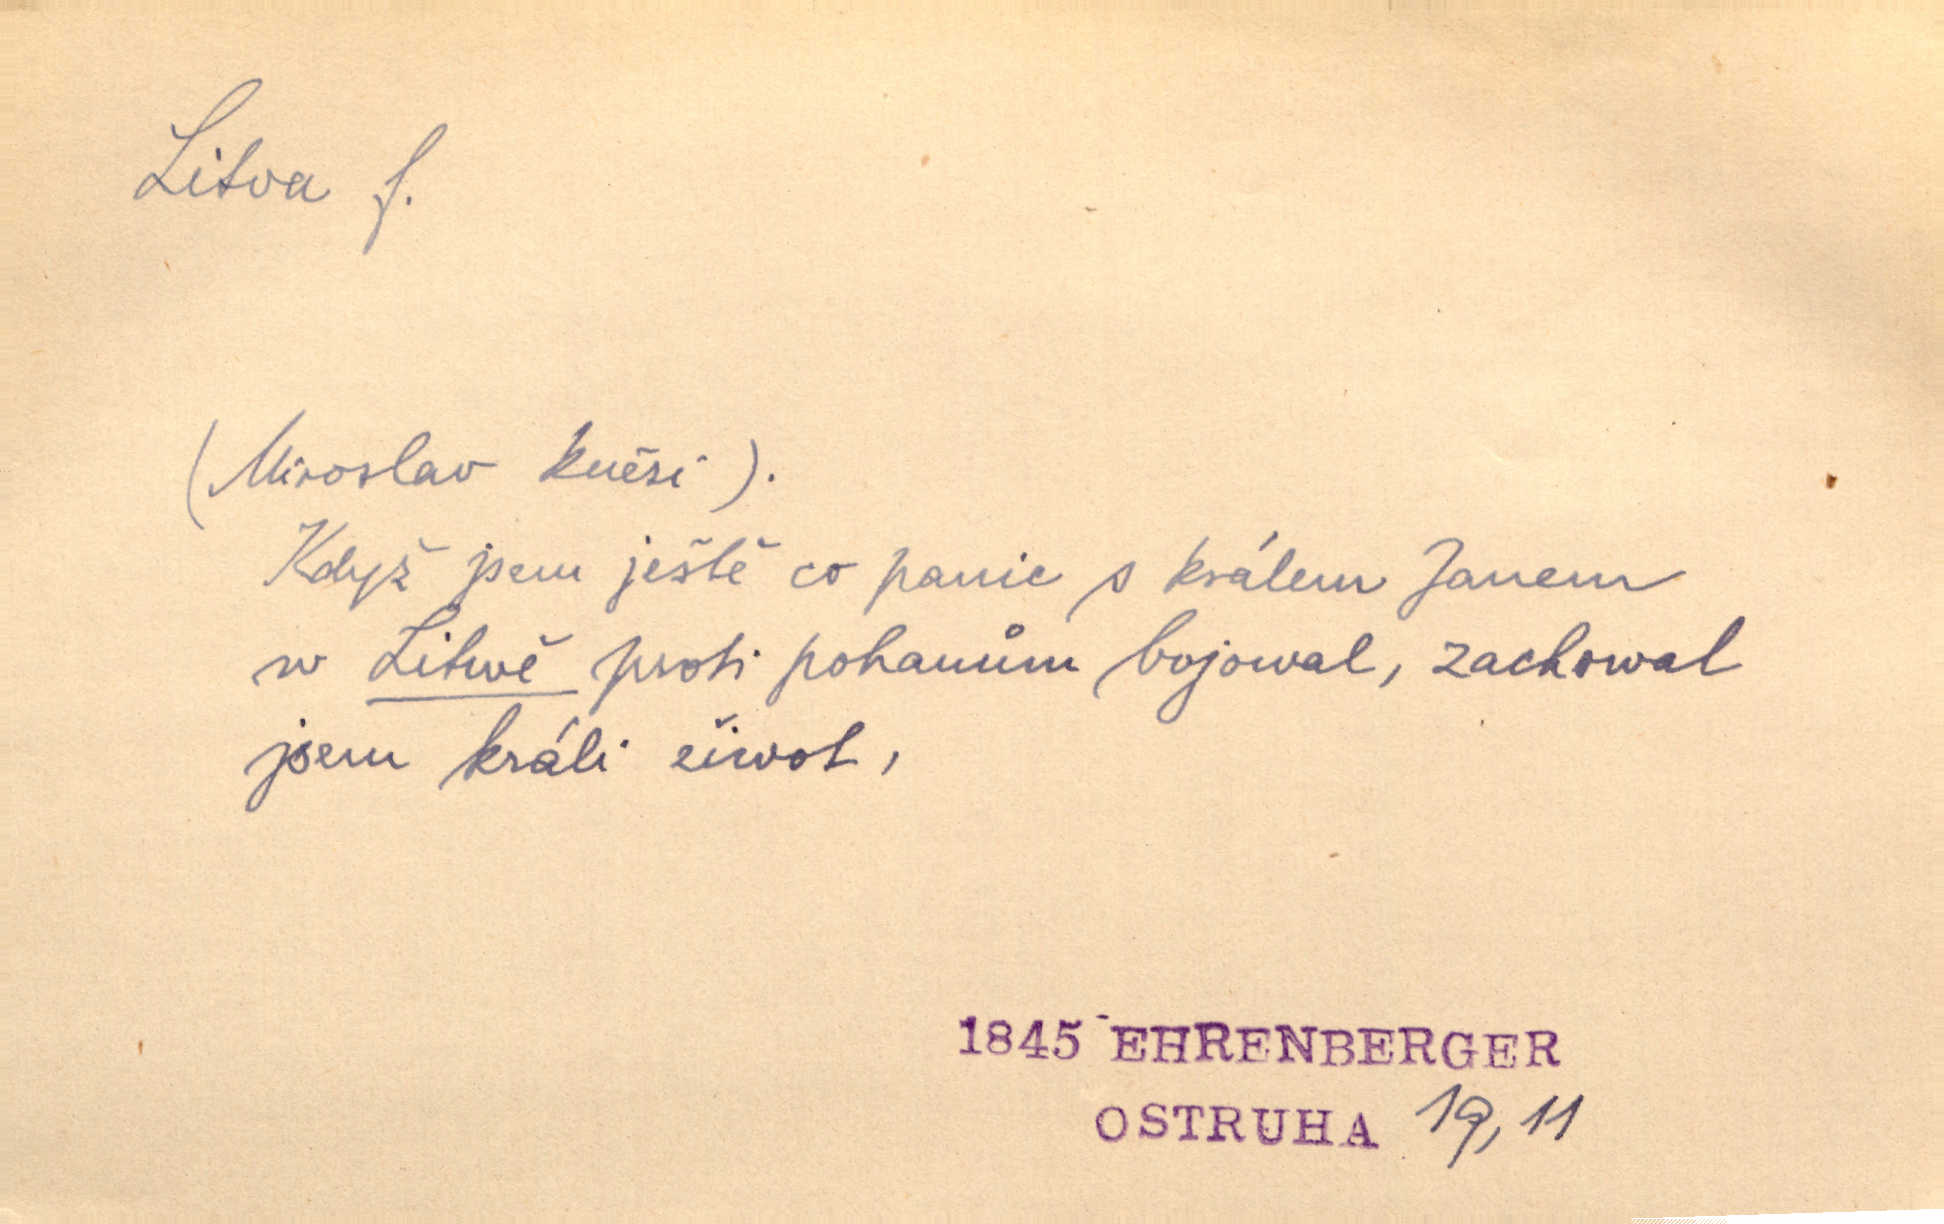 Litva f.
(Miroslav kněži).
Když jsem ještě co panic s králem Janem
w Litwě proti pohanům bojowal, zachowal
jsem králi žiwot,
1845 EHRENBERGER
OSTRUHA 19, 11